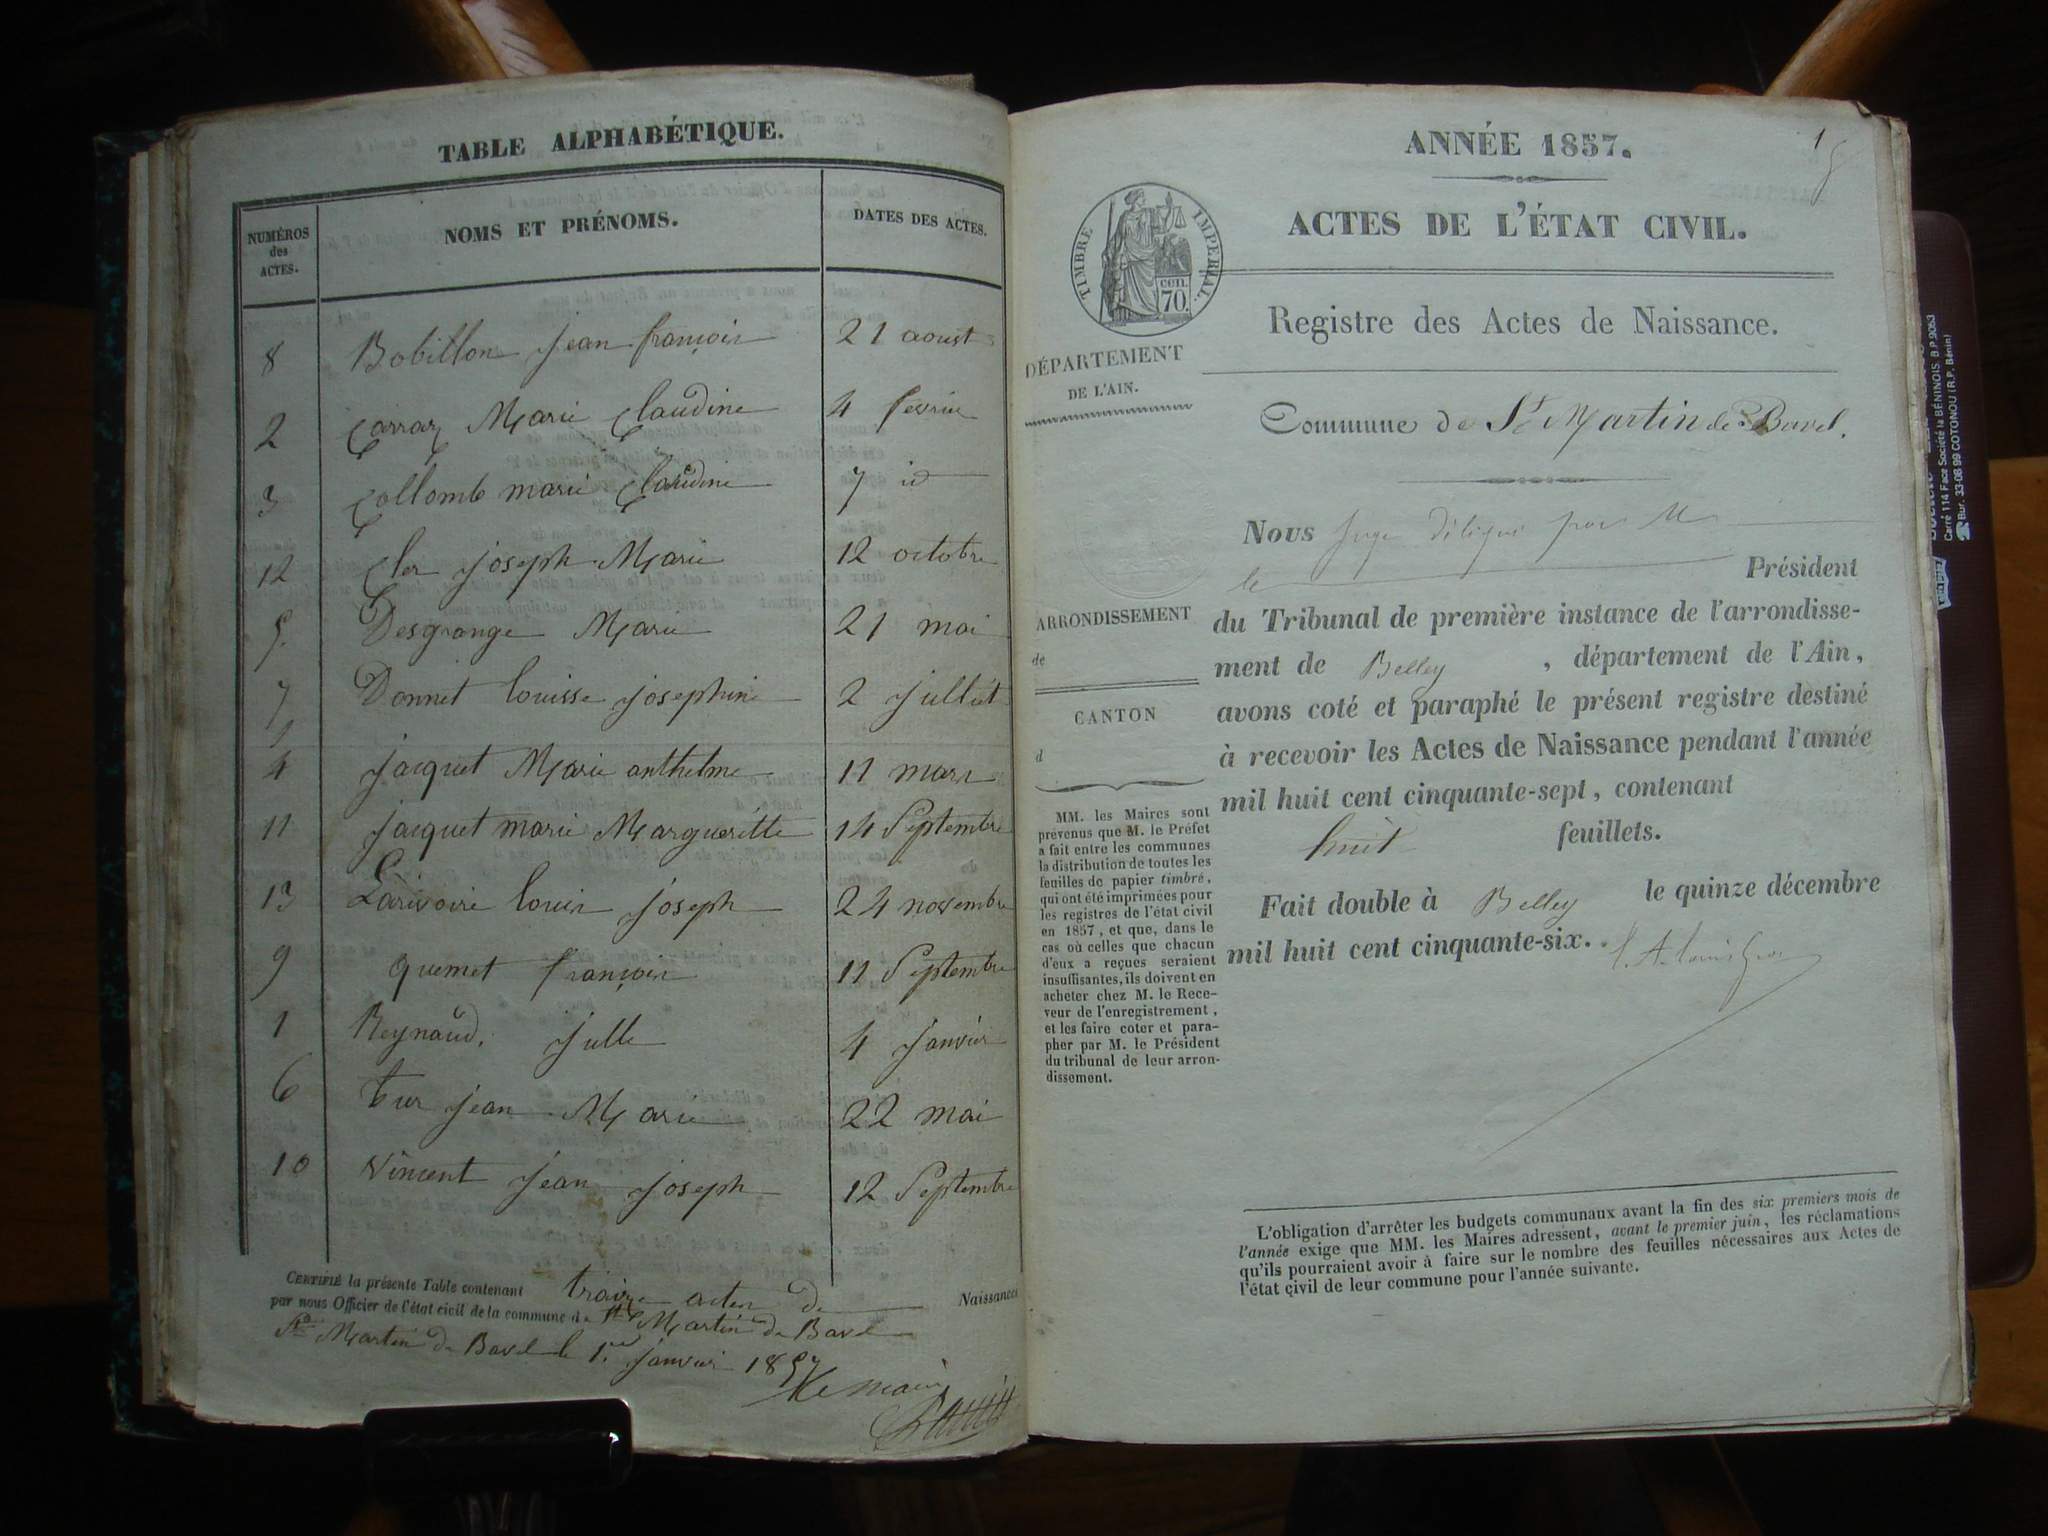 TABLE ALPHABÉTIQUE.
NUMÉROS des ACTES. NOMS ET PRÉNOMS. DATES DES ACTES.
8 Bobillon jean françois 21 aoust
2 Carraz Marie Claudine 4 fevrier
3 Collomb marie Claudine 7 id
12 Cler joseph Marie 12 octobre
5. Desgrange Marie 21 mai
7 Donnet louisse josephine 2 Jullet
4 jacquet Marie anthelme 11 mars
11 jacquet marie Margueritte 14 Septembre
13 Larivoire louis joseph 24 novembre
9 quemet françois 11 Septembre
1 Reynaud. julle 4 janvier
6 tur jean Marie 22 mai
10 Vincent jean joseph 12 Septembre
CERTIFIÉ la présente Table contenant traize actes de Naissances
par nous Officier de l'état civil de la commune de St Martin de Bavel
St Martin de Bavel le 1er janvier 1857
Le maire
ANNÉE 1857.
1
ACTES DE L'ÉTAT CIVIL.
TIMBRE IMPERIAL.
CEN.
70.
Registre des Actes de Naissance.
DÉPARTEMENT
DE L'AIN.
Commune de St Martin de Bavel.
Nous Juge délégué par M
le Président
du Tribunal de première instance de l'arrondisse-
ment de Belley , département de l'Ain,
avons coté et paraphé le présent registre destiné
à recevoir les Actes de Naissance pendant l'année
mil huit cent cinquante-sept, contenant
huit feuillets.
Fait double à Belley le quinze décembre
mil huit cent cinquante-six.
ARRONDISSEMENT
de
CANTON
d
MM. les Maires sont
prévenus que M. le Préfet
a fait entre les communes
la distribution de toutes les
feuilles de papier timbré,
qui ont été imprimées pour
les registres de l'état civil
en 1857, et que, dans le
cas où celles que chacun
d'eux a reçues seraient
insuffisantes, ils doivent en
acheter chez M. le Rece-
veur de l'enregistrement,
et les faire coter et para-
pher par M. le Président
du tribunal de leur arron-
dissement.
L'obligation d'arrêter les budgets communaux avant la fin des six premiers mois de
l'année exige que MM. les Maires adressent, avant le premier juin, les réclamations
qu'ils pourraient avoir à faire sur le nombre des feuilles nécessaires aux Actes de
l'état civil de leur commune pour l'année suivante.
Carré 114 Face Société la BÉNINOIS. B.P. 9053
Bur. 33-08 99 COTONOU (R.P. Bénin)